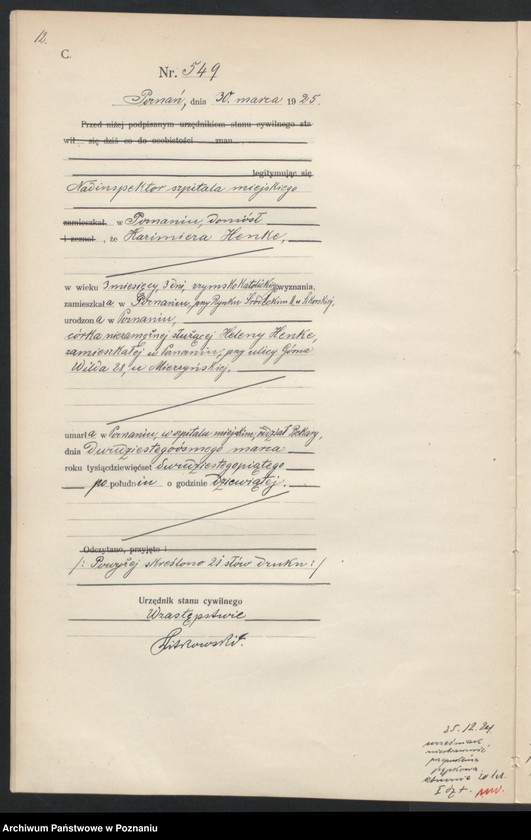 12.
C.
Nr. 549
Poznań, dnia 30. marca 1925.
Przed niżej podpisanym urzędnikiem stanu cywilnego sta
wił się dziś co do osobistości znan
legitymując się
Nadinspektor szpitala miejskiego
zamieszkał w Poznaniu, doniósł
i zeznał, że Kazimiera Henke,
w wieku 3 miesięcy 3 dni, rzymskokatolickiego wyznania,
zamieszkała w Poznaniu, przy Rynku Śródeckim u Sikorskiej,
urodzona w Poznaniu,
córka niezamężnej służącej Heleny Henke,
zamieszkałej w Poznaniu, przy ulicy Górna
Wilda 28, u Mierzyńskiej.
umarła w Poznaniu, w szpitalu miejskim, oddział Bekary,
dnia dwudziestegoósmego marca
roku tysiącdziewięćset dwudziestegopiątego
po południu o godzinie dziewiątej.
Odczytano, przyjęto i
/: Powyżej skreślono 21 słów druku :/
Urzędnik stanu cywilnego
W zastępstwie
25.12.24
I
Archiwum Państwowe w Poznaniu